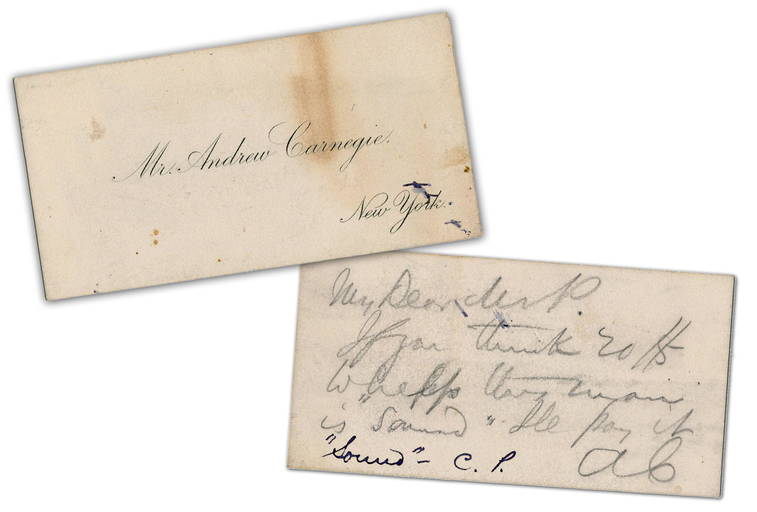 Mr. Andrew Carnegie.
New York.
My Dear
If you think 20
this man
is "Sound" I'll pay it
AC
"Sound" - C. P.